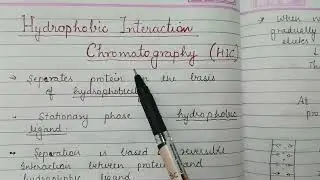 Hydrophobic Interaction
Chromatography (HIC)
→ Separates protein on the basis
of hydrophobicity
→ Stationary phase → hydrophobic
ligand.
→ Separation is based reversible
Interaction between protein and
hydrophobic ligand
→ When
gradually
elutes
At
pro